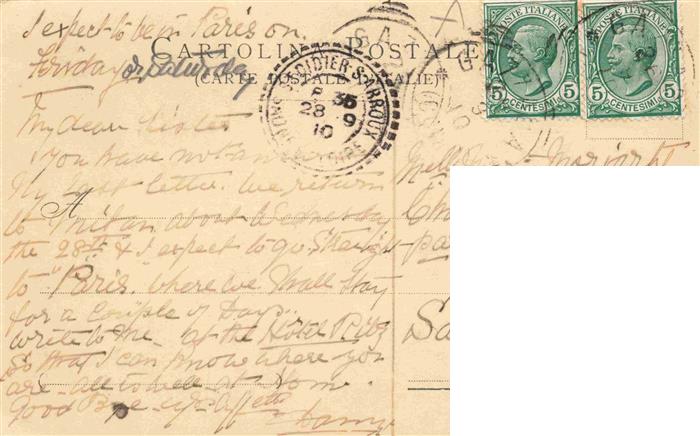 I expect to be in Paris on
Friday or Saturday
CARTOLINA POSTALE
(CARTE POSTALE D'ITALIE)
POSTE ITALIANE
5 CENTESIMI 5
POSTE ITALIANE
5 CENTESIMI 5
ST DIDIER S ARROUX
28 9
10
My dear Sister
you have not
My last letter. We return
A
to about Wednesday
the 28th & I expect to go straight
to "Paris" where we shall stay
for a couple of Days.
write to me at the Hotel Ritz
so that I can know where you
are. all well at Home.
Good Bye
Harry
Mlle
Sa